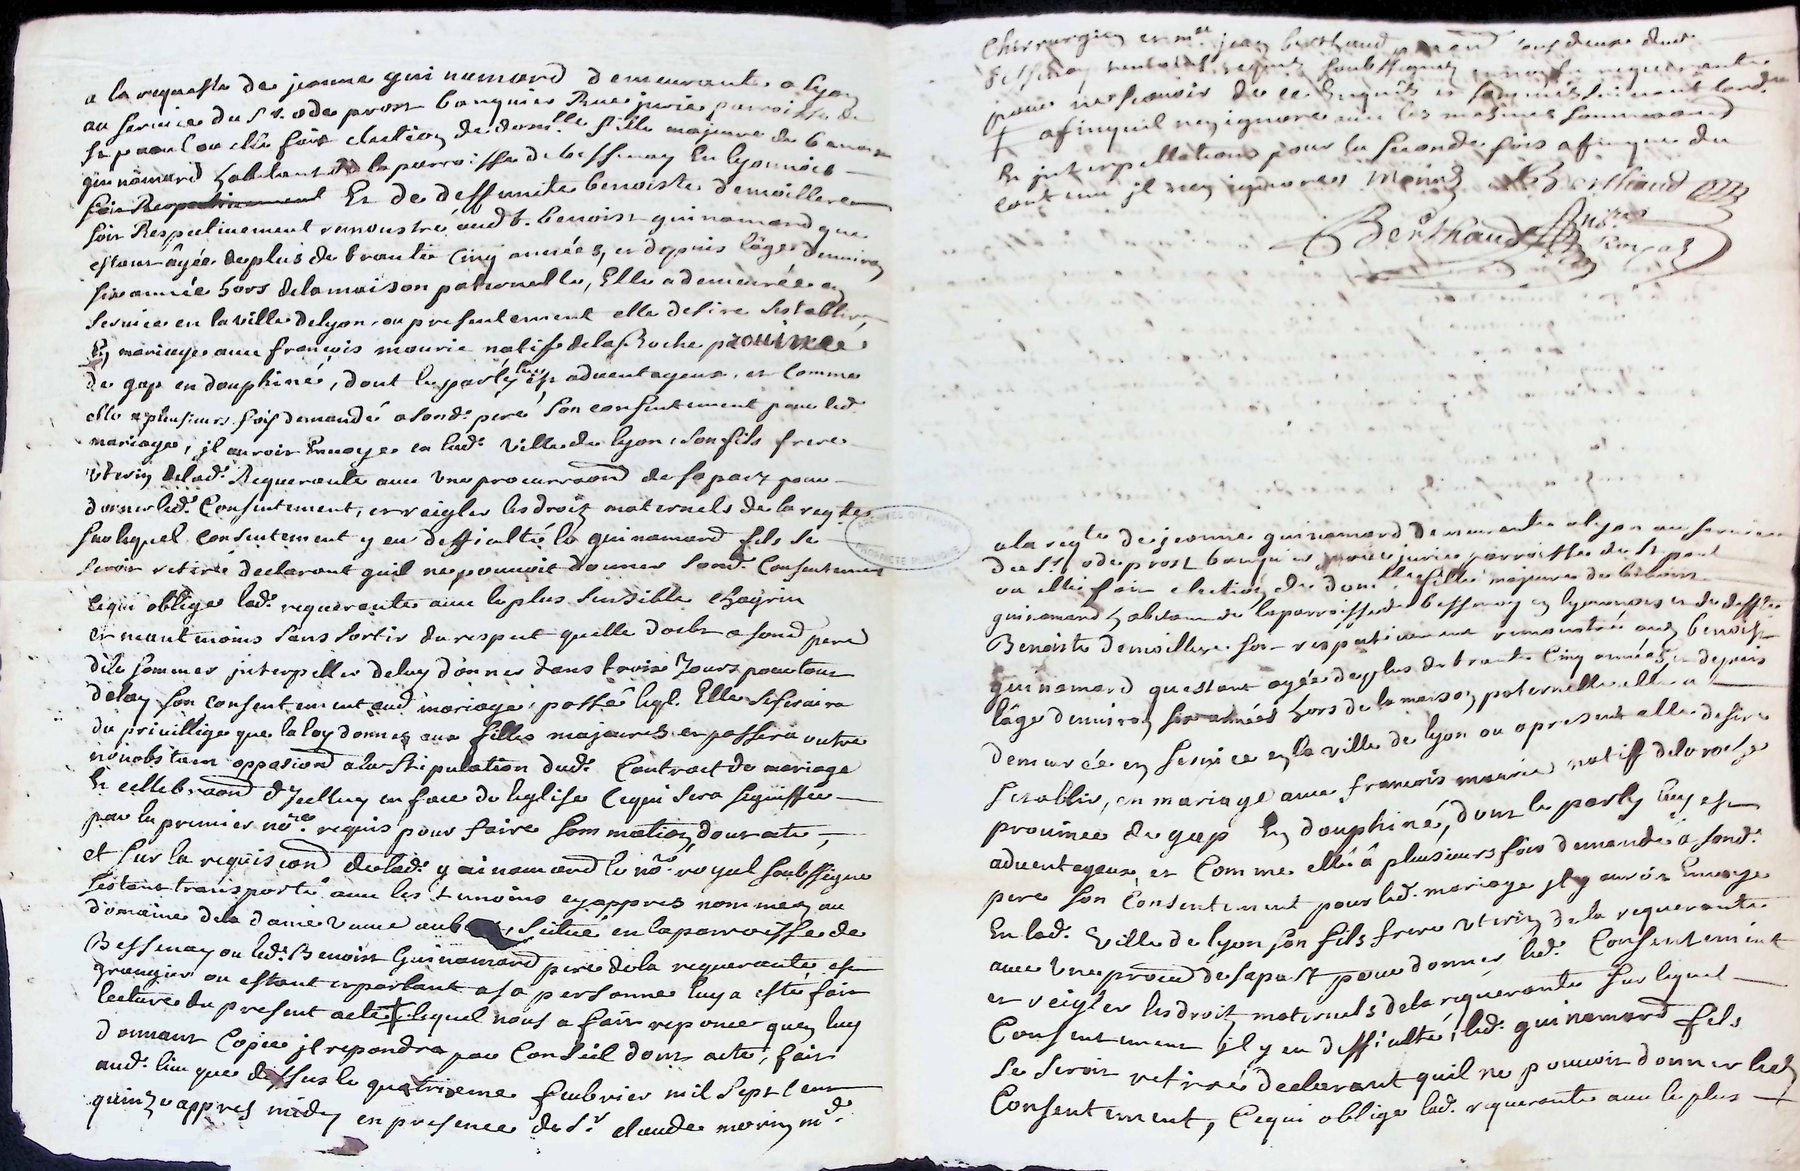 a la requeste de jeanne guinamard demeurante a lyon
au service du Sr. odeprost banquier Rue jurie parroisse de
St paoul ou elle fait election de domlle. fille majeure de benoist
guinamard habitant de la parroisse de bessenay En lyonnois
fait Respectivement Et de deffunte benoiste demoillere
fait Respectivement remonstré audt. benoist guinamard que
estant âgée de plus de trante cinq années, et depuis lâge denviron
six année hors de la maison paternelle, Elle a demeurée en
service en la ville de lyon ou presentement elle desire s'establir,
En mariage avec françois mourie natif de la Roche province
de gap en dauphiné, dont le party luy est advantageux. et comme
elle a plusieurs fois demandé a sond. pere son consentement pour led.
mariage, jl auroit Envoye en lad. ville de lyon son fils frere
uterin de lad. Requerante avec une procuraond de sa part pour
donner led. Consentement, et reigler les droit maternels de la reqte.
sur lequel consentement y eu difficulté le guinamard fils se
seroit retiré declarant quil ne pouvoit donner sond. Consentement
ce qui oblige lad. requerante avec le plus sensible chagrin
et neantmoins sans sortir du respect quelle doibt a sond pere
de le sommer jnterpeller de luy donner dans trois Jours pour tout
delay son consentement aud mariage, passé leql. Elle se servira
du privillige que la loy donne aux filles majeures et passera outre
nonobstant oppasiond a la stipulation dud. Contract de mariage
et cellebraond d'Jcelluy en face de leglise ce qui sera signiffié
par le premier nore. requis pour faire sommation, dont acte,
et sur la requisiond de lad. guinamard le nore royal soubsigne
sestant transporté avec les temoins cy appres nommez au
domaine de la dame veuve aub , situé en la parroisse de
Bessenay ou led. Benoist Guinamard pere de la requerante est
granger ou estant et parlant a sa personne luy a esté fait
lecture du present acte + lequel nous a fait reponce quen luy
donnant Copie jl repondra par Conseil dont acte, fait
aud. lieu que dessus le quatrieme feubvrier mil sept cent
quinze appres midy en presence de Sr claude morin md.
Chirurgien et me. jean berthaud
pour ne scavoir de ce Enquis et sommés
+ afinquil nen ignore avec les mesmes sommaond
et jnterpellations pour la seconde fois affinque du
contenu jl nen ignore Morin Berthaud
Berthaud nore. Royal
a la reqte de jeanne guinamard demeurante a lyon au service
du Sr. odeprost banquier rue jurie parroisse de St paul
ou elle fait election de domlle fille majeure de benoist
guinamard habitant de la parroisse de bessenay en lyonnois et de deffte
Benoiste demoillere fait respectivement remonstrée aud benoist
guinamard questant agée de plus de trante cinq années, et depuis
lâge denviron six années hors de la maison paternelle elle a
demurée en service en la ville de lyon ou a present elle desire
sestablir, en mariage avec françois mourie natiff de la roche
province de gap En dauphiné, dont le party luy est
advantageux, et Comme elle â plusieurs fois demandé a sond.
pere son Consentement pour led. mariage jl y auroit Envoye
En lad. ville de lyon son fils frere uterin de la requerante
avec une procuond de sa part pour donner led. Consentement
et reigler les droit maternels de la requerante sur lequel
Consentement jl y eu difficulté, led. guinamard fils
se seroit retiré declarant quil ne pouvoit donner led
Consentement, Ce qui oblige lad. requerante avec le plus